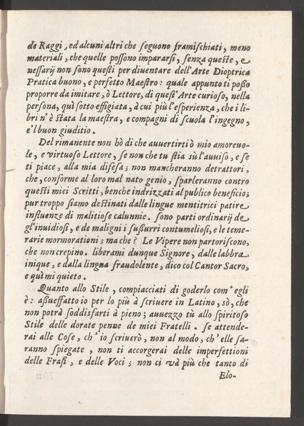 de Raggi, ed alcuni altri che seguono framischiati, meno
materiali, che quelle possono impararsi, senza queste, e
nessarij non sono questi per diuentare dell'Arte Dioptrica
Pratica buono, e perfetto Maestro: quale appunto ti posso
proporre da imitare, ò Lettore, di quest'Arte curioso, nella
persona, quì sotto effigiata, à cui più l'esperienza, che i li-
bri n'è stata la maestra, e compagni di scuola l'ingegno,
e'l buon giuditio.
Del rimanente non hò di che auuertirti ò mio amoreuo-
le, e virtuoso Lettore, se non che tu stia sù l'auuiso, e se
ti piace, alla mia difesa; non mancheranno detrattori,
che, conforme al loro mal nato genio, sparleranno contro
questi miei Scritti, benche indrizzati al publico beneficio;
pur troppo siamo destinati dalle lingue mentitrici patire
influenze di malitiose calunnie. Sono parti ordinarij de
gl'inuidiosi, e de maligni i susurri contumeliosi, e le teme-
rarie mormorationi; ma che? Le Vipere non partoriscono,
che non crepino. liberami dunque Signore, dalle labbra
inique, e dalla lingua fraudolente, dico col Cantor Sacro,
e quì mi quieto.
Quanto allo Stile, compiacciati di goderlo com'egli
è: assueffatto io per lo più à scriuere in Latino, sò, che
non potrà soddisfarti à pieno; auuezzo tù allo spiritoso
Stile delle dorate penne de miei Fratelli. Se attende-
rai alle Cose, ch'io scriuerò, non al modo, ch'elle sa-
ranno spiegate, non ti accorgerai delle imperfettioni
delle Frasi, e delle Voci; non ci và più che tanto di
Elo-